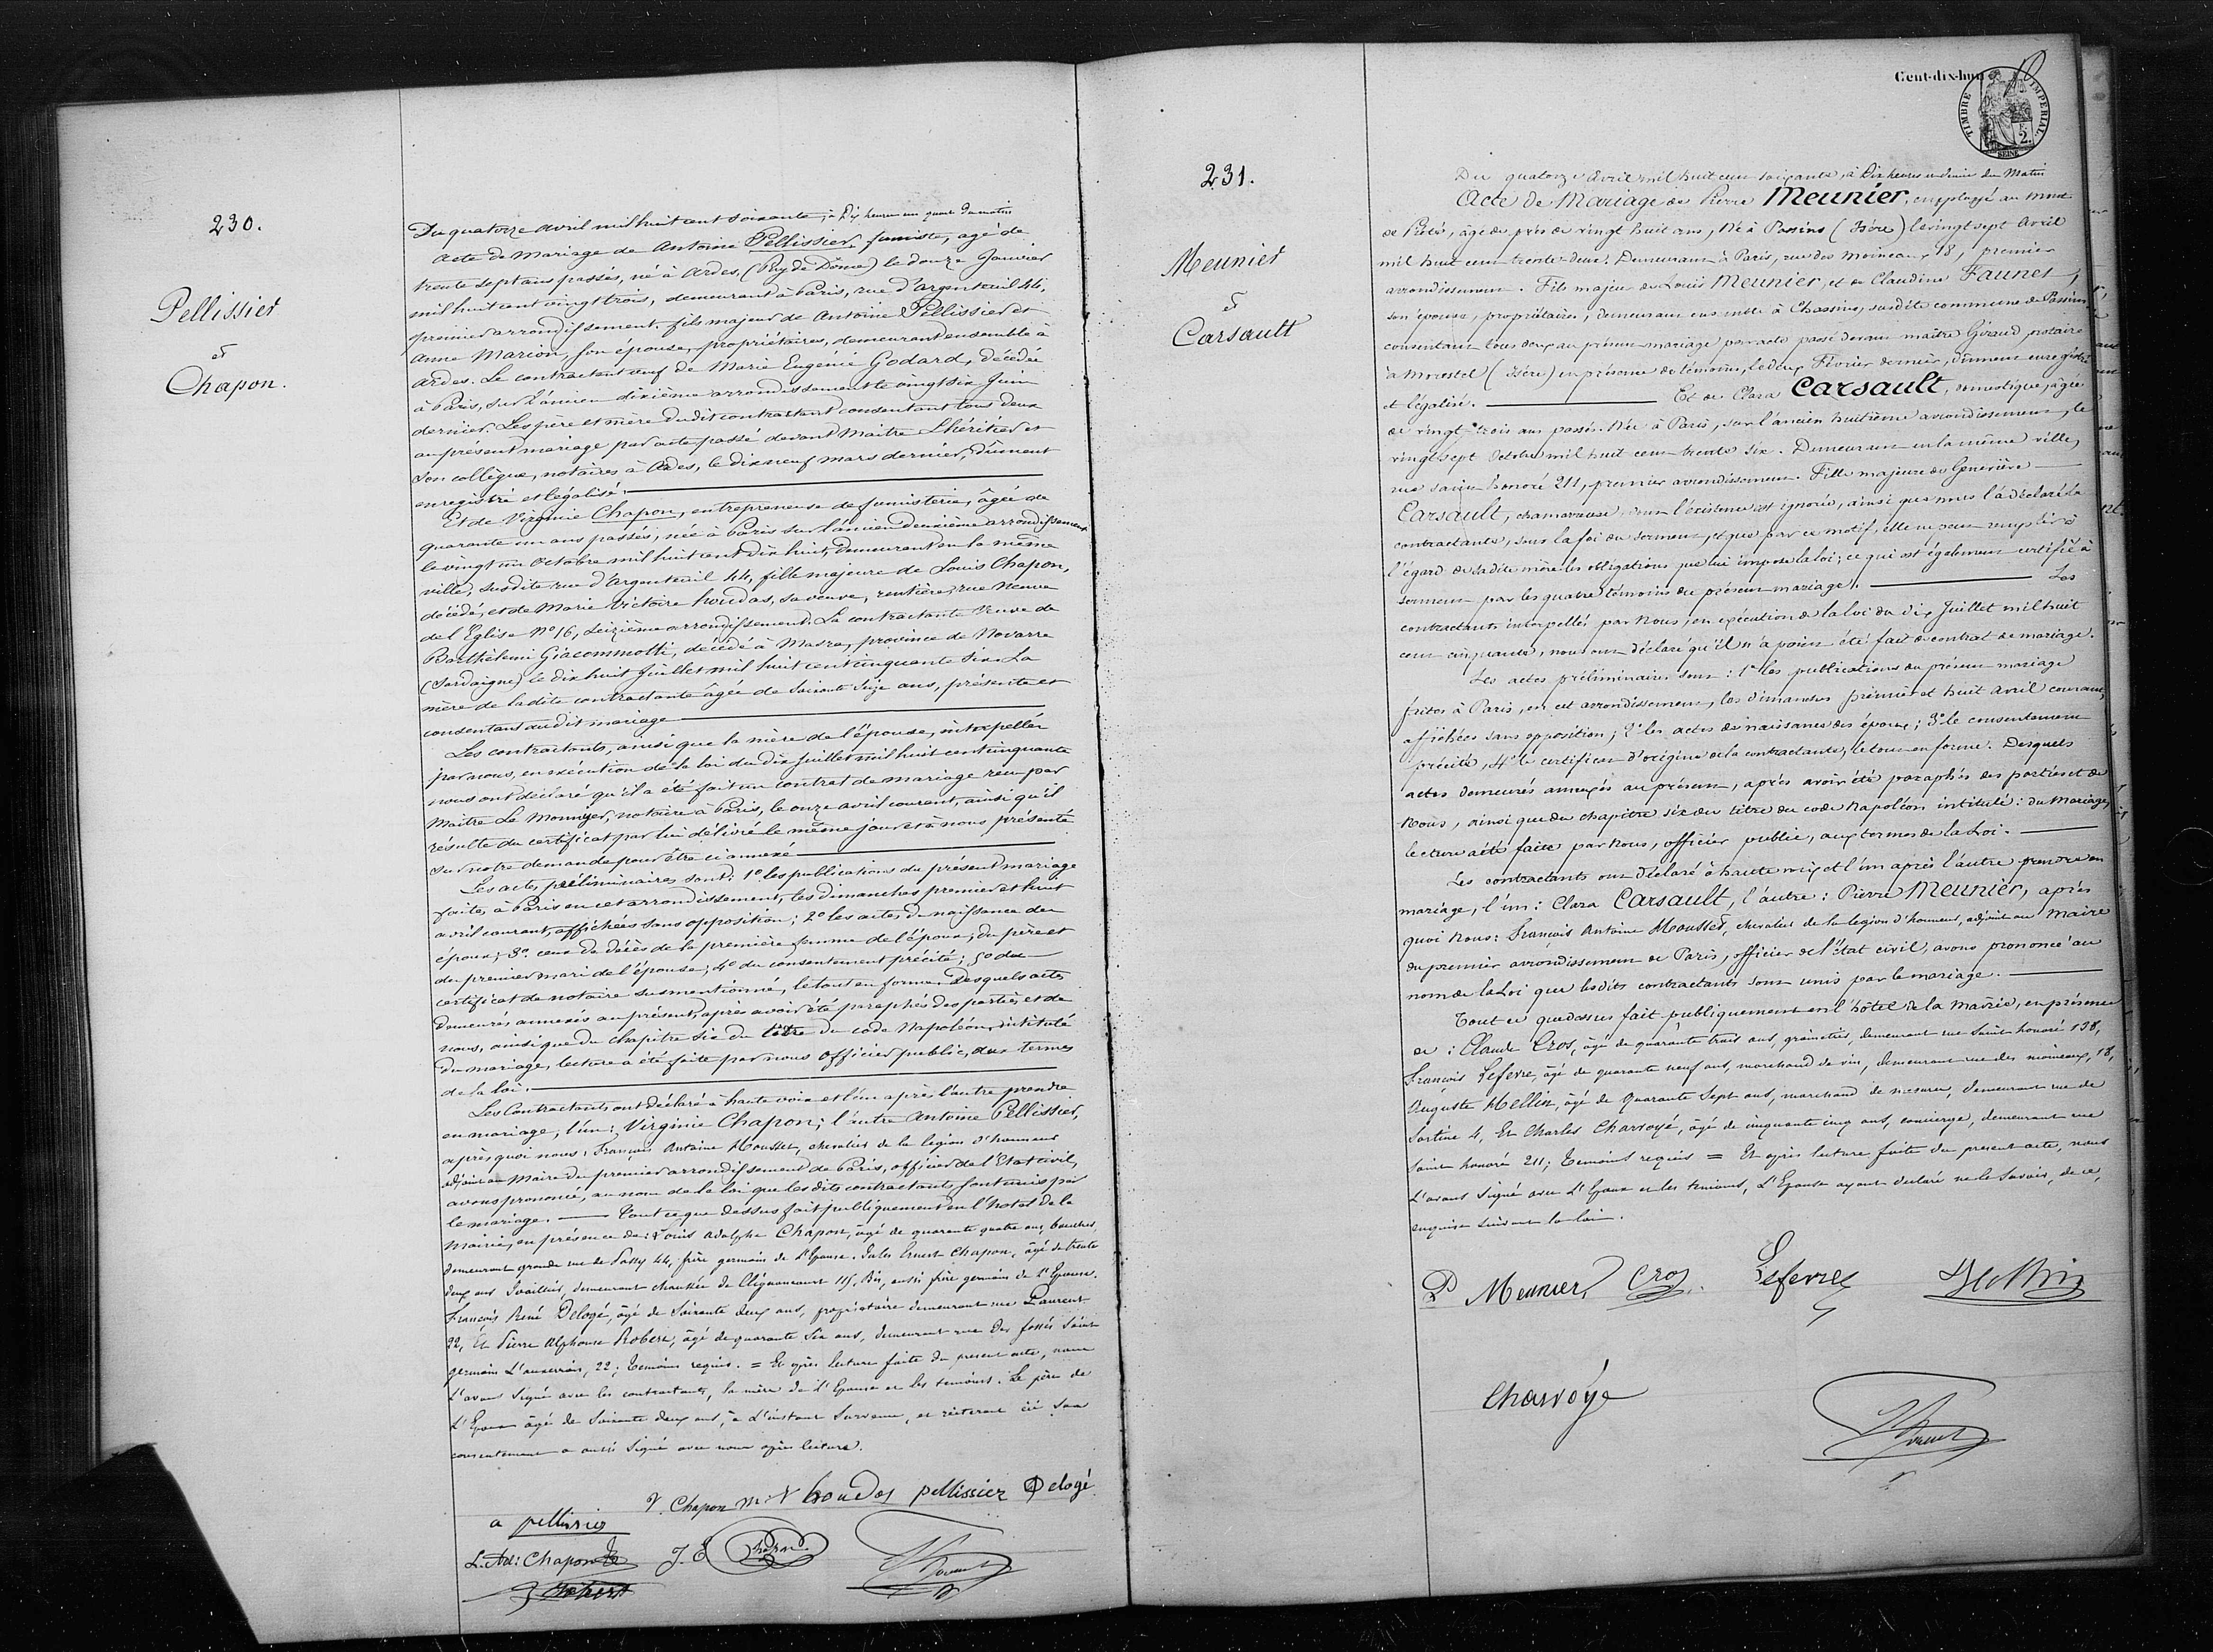 230.
Pellissier
et
Chapon.
Du quatorze avril mil huit cent soixante, à Dix heures un quart du matin
Acte de Mariage de Antoine Pellissier, fumiste, agé de
trente sept ans passés, né à Ardes, (Puy de Dôme) le douze Janvier
mil huit cent vingt trois, demeurant à Paris, rue d'argenteuil 44,
premier arrondissement. fils majeur de Antoine Pellissier et
Anne Marion, son épouse, propriétaires, demeurant ensemble à
Ardes. Le contractant veuf de Marie Eugénie Godard, décédée
à Paris, sur l'ancien dixième arrondissement le vingt six Juin
dernier. Les père et mère dudit contractant consentant tous deux
au présent mariage par acte passé devant Maitre Lhéritier et
son collègue, notaires à Ardes, le dix neuf mars dernier, dûment
enregistré et légalisé.
Et de Virginie Chapon, entrepreneuse de fumisterie, âgée de
quarante un ans passés, née à Paris sur l'ancien deuxième arrondissement
le vingt un Octobre mil huit cent dix huit, demeurant en la même
ville, susdite rue d'argenteuil 44, fille majeure de Louis Chapon,
décédé, et de Marie Victoire houdas, sa veuve, rentière, rue Neuve
de l'Eglise No 16, seizième arrondissement. La contractante Veuve de
Barthélemi Giacommotti, décédé à Masra, province de Novarre
(Sardaigne) le dix huit Juillet mil huit cent cinquante six. La
mère de ladite contractante âgée de soixante seize ans, présente et
consentant audit mariage
Les contractants, ainsi que la mère de l'épouse, interpellés
par nous, en exécution de la loi du dix Juillet mil huit cent cinquante
nous ont déclaré qu'il a été fait un contrat de mariage reçu par
Maitre Le Monnyer, notaire à Paris, le onze avril courant, ainsi qu'il
résulte du certificat par lui délivré le même jour et à nous présenté
sur notre demande pour être ci annexé
Les actes préliminaires sont: 1o les publications du présent mariage
faites à Paris en cet arrondissement, les dimanches premier et huit
avril courant, affichées sans opposition; 2o les actes de naissance des
époux; 3o ceux de décès de la première femme de l'époux, du père et
du premier mari de l'épouse; 4o du consentement précité; 5o du
certificat de notaire susmentionné, le tout en forme. Desquels actes
demeurés annexés au présent, après avoir été paraphés des parties et de
nous, ainsi que du chapitre six du titre du code Napoléon, intitulé
du mariage, lecture a été faite par nous officier public, aux termes
de la loi.
Les Contractants ont déclaré à haute voix et l'un après l'autre prendre
en mariage, l'un: Virginie Chapon; l'autre Antoine Pellissier,
après quoi nous: François Antoine Mousset, chevalier de la légion d'honneur
adjoint au Maire du premier arrondissement de Paris, officier de l'Etat civil,
avons prononcé, au nom de la loi que les dits contractants sont unis par
le mariage. Tout ce que dessus fait publiquement en l'hotel de la
Mairie, en présence de: Louis Adolphe Chapon, âgé de quarante quatre ans, boucher,
demeurant grande rue de Passy 44, frère germain de l'Epouse. Jules Ernest Chapon, âgé de trente
deux ans Joaillier, demeurant chaussée de Clignancourt 115, Bis, aussi frère germain de l'Epouse.
François René Delogé, âgé de soixante deux ans, propriétaire demeurant rue Laurent
22, Et Pierre Alphonse Robert, âgé de quarante six ans, demeurant rue des fossés Saint
germain L'auxerrois, 22; témoins requis. = Et après lecture faite du present acte, nous
l'avons signé avec les contractants, la mère de l'Epouse et les témoins. Le père de
l'Epoux âgé de soixante deux ans, à l'instant survenu, et réiterant ici son
consentement a aussi signé avec nous après lecture.
V. Chapon m. V houdas pellissier Delogé
a pellissier
L. Ad: Chapon J. E Chapon
Robert
Cent-dix-huit
TIMBRE IMPERIAL
2.
SEINE
231.
Meunier
et
Carsault
Du quatorze avril mil huit cent soixante, à Dix heures et demie du Matin
Acte de Mariage de Pierre Meunier, employé au Mont
de Piété, âgé de près de vingt huit ans, Né à Passins (Isère) le vingt sept Avril
mil huit cent trente deux. Demeurant à Paris, rue des Moineaux, 18, premier
arrondissement. Fils majeur de Louis Meunier, et de Claudine Faunet,
son épouse, propriétaires, demeurant ensemble à Chassins, susdite commune de Passins
consentant tous deux au présent mariage par acte passé devant maître Giraud, notaire
à Morestel (Isère) en présence de témoins, le deux Février dernier, dûment enregistré
et légalisé. Et de Clara Carsault, domestique, âgée
de vingt trois ans passés. Née à Paris, sur l'ancien huitième arrondissement, le
vingt sept Octobre mil huit cent trente six. Demeurant en la même ville,
rue saint honoré 211, premier arrondissement. Fille majeure de Geneviève
Carsault, chamareuse dont l'existence est ignorée, ainsi que nous l'a déclaré la
contractante, sous la foi du serment, et que par ce motif, elle ne peut remplir à
l'égard de sa dite mère les obligations que lui impose la loi; ce qui est également certifié à
serment par les quatre témoins du présent mariage. Les
contractants interpellés par Nous, en exécution de la loi du dix Juillet mil huit
cent cinquante, nous ont déclaré qu'il n'a point été fait de contrat de mariage.
Les actes préliminaires sont: 1o les publications du présent mariage
faites à Paris, en cet arrondissement, les dimanches premier et huit avril courant,
affichées sans opposition; 2o les actes de naissance des époux; 3o le consentement
précité, 4o le certificat d'origine de la contractante, le tout en forme. Desquels
actes demeurés annexés au présent, après avoir été paraphés des parties et de
Nous, ainsi que du chapitre six du titre du code Napoléon intitulé: du Mariage,
lecture a été faite par Nous, officier public, aux termes de la Loi.
Les contractants ont déclaré à haute voix et l'un après l'autre prendre en
mariage, l'un: Clara Carsault, l'autre: Pierre Meunier, après
quoi Nous: François Antoine Mousset, chevalier de la legion d'honneur, adjoint au Maire
du premier arrondissement de Paris, officier de l'état civil, avons prononcé au
nom de la Loi que lesdits contractants sont unis par le mariage.
Tout ce que dessus fait publiquement en l'hôtel de la Mairie, en présence
de: Claude Cros, âgé de quarante trois ans, grainetier, demeurant rue Saint honoré 138,
François Lefevre, âgé de quarante neuf ans, marchand de vin, demeurant rue des moineaux, 18,
Auguste Hellin, âgé de quarante sept ans, marchand de mesures, demeurant rue de
Sartine 4, Et Charles Charvoyé, âgé de cinquante cinq ans, concierge, demeurant rue
Saint honoré 211; témoins requis = Et après lecture faite du présent acte, nous
L'avons signé avec l'Epoux et les témoins, l'Epouse ayant declaré ne le savoir, de ce,
enquise suivant la loi.
P Meunier Cros Lefevre Hellin
Charvoye